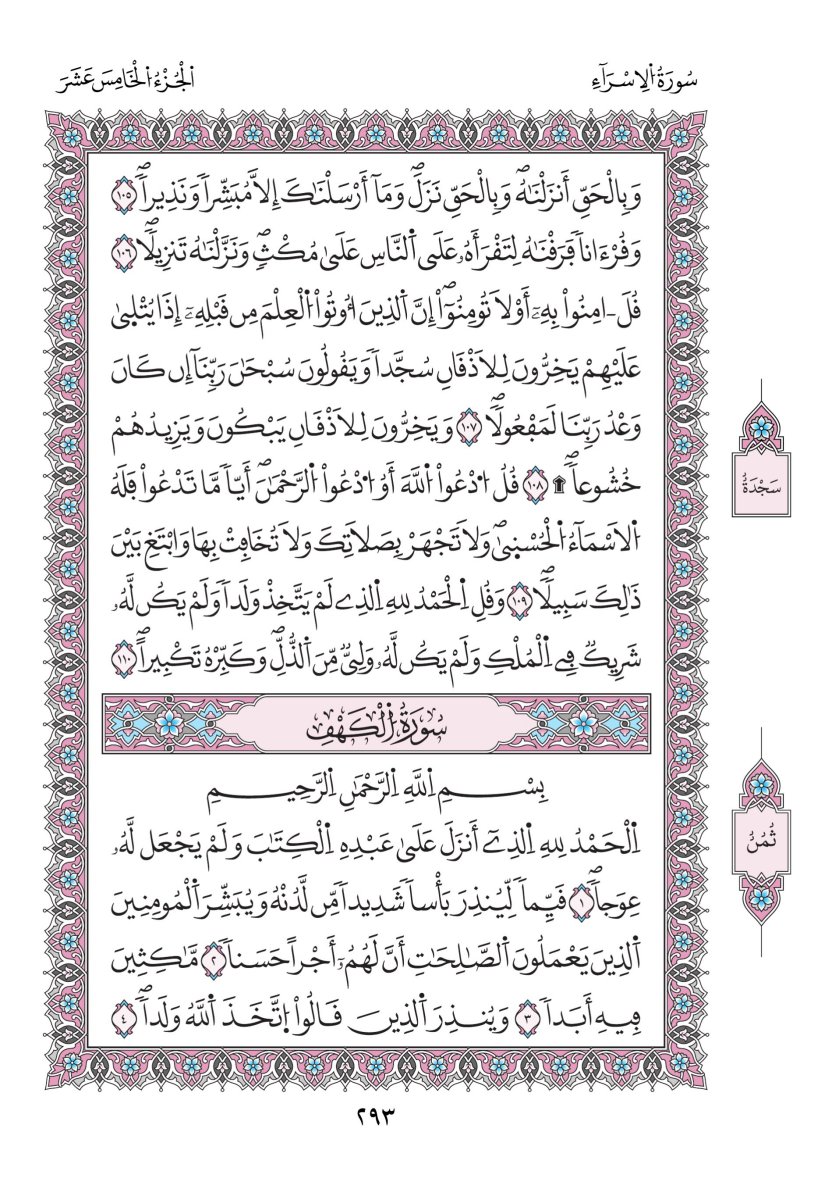 سُورَةُ اُ۬لِاسْرَآءِ
اَ۬لْجُزْءُ اُ۬لْخَامِسَ عَشَرَ
وَبِالْحَقِّ أَنزَلْنَٰهُۖ وَبِالْحَقِّ نَزَلَۖ وَمَآ أَرْسَلْنَٰكَ إِلَّا مُبَشِّراٗ وَنَذِيراٗۖ ١٠٥
وَقُرْءَاناٗ فَرَقْنَٰهُ لِتَقْرَأَهُۥ عَلَى اَ۬لنَّاسِ عَلَىٰ مُكْثٖۖ وَنَزَّلْنَٰهُ تَنزِيلاٗۖ ١٠٦
قُلَ اٰمِنُواْ بِهِۦٓ أَوْ لَا تُومِنُوٓاْۖ إِنَّ اَ۬لذِينَ أُوتُواْ اُ۬لْعِلْمَ مِن قَبْلِهِۦٓ إِذَا يُتْلَىٰ
عَلَيْهِمْ يَخِرُّونَ لِلَاذْقَانِ سُجَّداٗ وَيَقُولُونَ سُبْحَٰنَ رَبِّنَآ إِن كَانَ
وَعْدُ رَبِّنَا لَمَفْعُولاٗۖ ١٠٧ وَيَخِرُّونَ لِلَاذْقَانِ يَبْكُونَ وَيَزِيدُهُمْ
خُشُوعاٗۖ ۩ ١٠٨ قُلُ اُ۟دْعُواْ اُ۬للَّهَ أَوُ اُ۟دْعُواْ اُ۬لرَّحْمَٰنَۖ أَيّاٗ مَّا تَدْعُواْ فَلَهُ
اُ۬لَاسْمَآءُ اُ۬لْحُسْنَىٰۖ وَلَا تَجْهَرْ بِصَلَاتِكَ وَلَا تُخَافِتْ بِهَا وَابْتَغِ بَيْنَ
ذَٰلِكَ سَبِيلاٗۖ ١٠٩ وَقُلِ اِ۬لْحَمْدُ لِلهِ اِ۬لذِے لَمْ يَتَّخِذْ وَلَداٗ وَلَمْ يَكُن لَّهُۥ
شَرِيكٞ فِے اِ۬لْمُلْكِ وَلَمْ يَكُن لَّهُۥ وَلِيّٞ مِّنَ اَ۬لذُّلِّۖ وَكَبِّرْهُ تَكْبِيراٗۖ ١١٠
سَجْدَةٌ
سُورَةُ اُ۬لْكَهْفِ
بِسْمِ اِ۬للَّهِ اِ۬لرَّحْمَٰنِ اِ۬لرَّحِيمِ
اِ۬لْحَمْدُ لِلهِ اِ۬لذِےٓ أَنزَلَ عَلَىٰ عَبْدِهِ اِ۬لْكِتَٰبَ وَلَمْ يَجْعَل لَّهُۥ
ثُمُنُ
عِوَجاٗۖ ١ قَيِّماٗ لِّيُنذِرَ بَأْساٗ شَدِيداٗ مِّن لَّدُنْهُ وَيُبَشِّرَ اَ۬لْمُومِنِينَ
اَ۬لذِينَ يَعْمَلُونَ اَ۬لصَّٰلِحَٰتِ أَنَّ لَهُمُۥٓ أَجْراً حَسَناٗ ٢ مَّٰكِثِينَ
فِيهِ أَبَداٗ ٣ وَيُنذِرَ اَ۬لذِينَ قَالُواْ اُ۪تَّخَذَ اَ۬للَّهُ وَلَداٗۖ ٤
٢٩٣